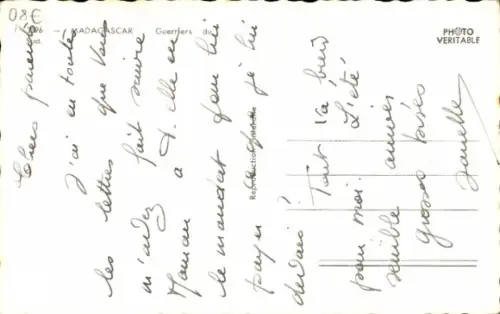 08€
MADAGASCAR — Guerriers du
Sud.
PHOTO
VERITABLE
Reproduction interdite
Chers parents
J'ai eu toutes
les lettres que vous
m'avez fait suivre
Maman a-t-elle eu
le mandat pour lui
payer ce que je lui
devais?
Tout va bien
pour moi L'été
semble arriver
grosses bises